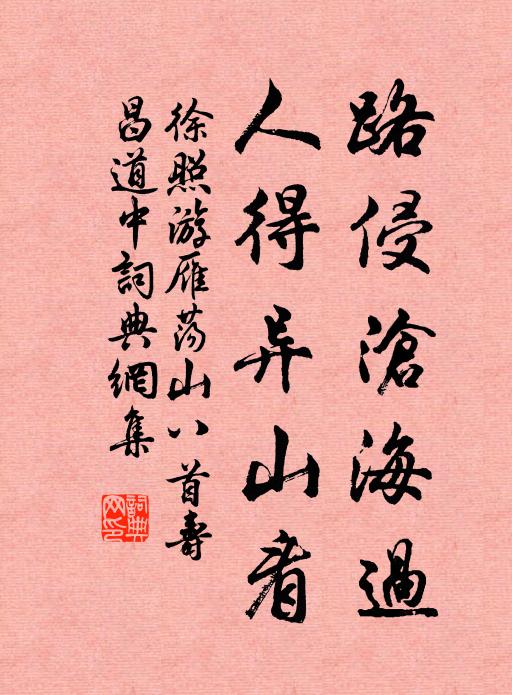 路侵滄海過
人得异山看
徐照游雁蕩山八首壽
昌道中詞典網集
詞典
网印